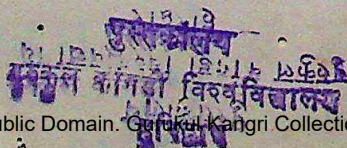 पुस्तकालय
गुरुकुल कांगड़ी विश्वविद्यालय
हरिद्वार
ublic Domain. Gurukul Kangri Collecti